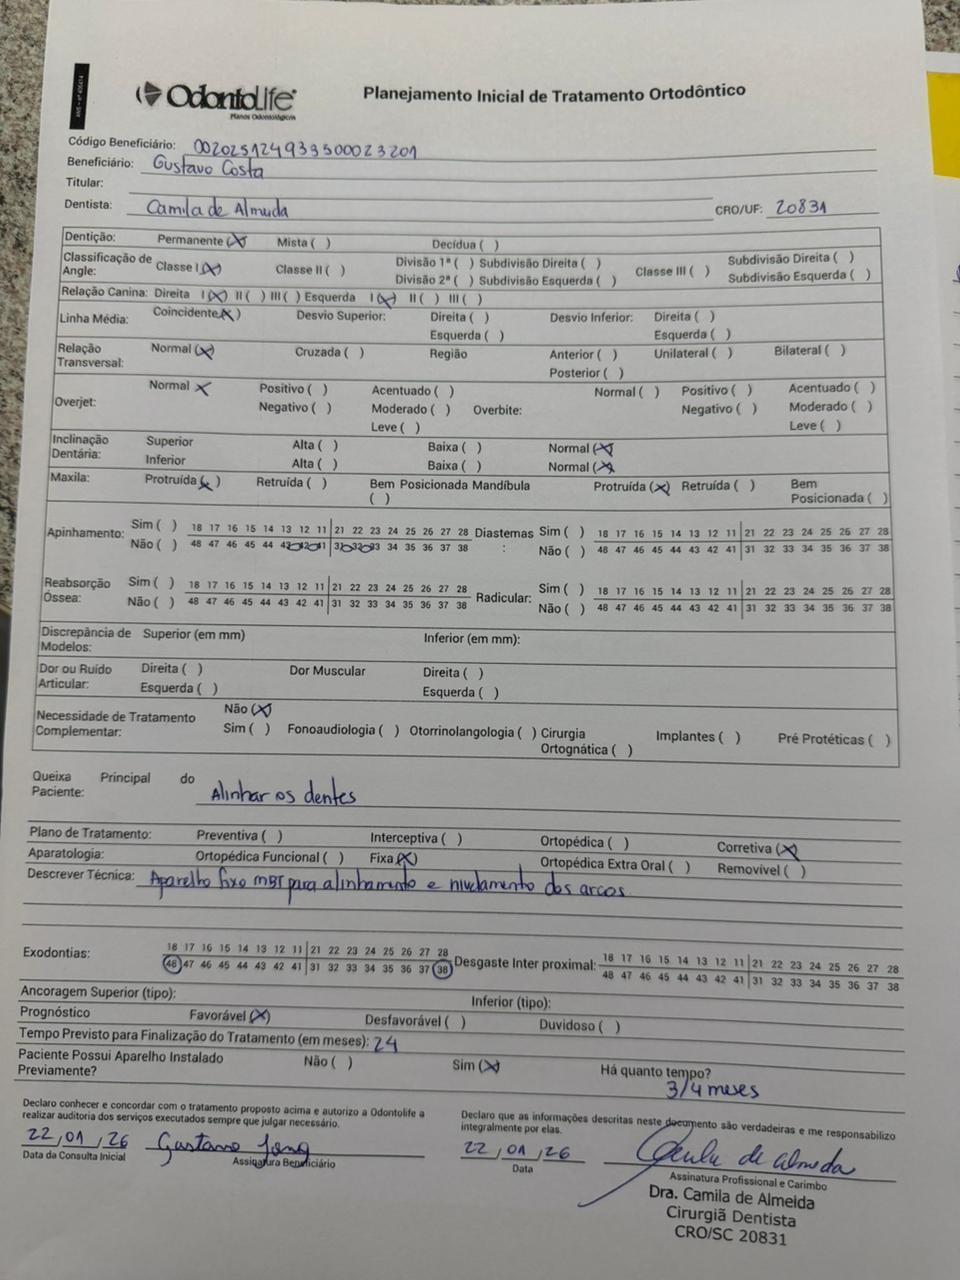 ANS - nº 406414
OdontoLife®
Planos Odontológicos
Planejamento Inicial de Tratamento Ortodôntico
Código Beneficiário: 00202512493350002 3201
Beneficiário: Gustavo Costa
Titular:
Dentista: Camila de Almeida CRO/UF: 20831
Dentição: Permanente (X) Mista ( ) Decídua ( )
Classificação de Angle: Classe I (X) Classe II ( ) Divisão 1ª ( ) Subdivisão Direita ( ) Classe III ( ) Subdivisão Direita ( )
Divisão 2ª ( ) Subdivisão Esquerda ( ) Subdivisão Esquerda ( )
Relação Canina: Direita I (X) II ( ) III ( ) Esquerda I (X) II ( ) III ( )
Linha Média: Coincidente (X) Desvio Superior: Direita ( ) Desvio Inferior: Direita ( )
Esquerda ( ) Esquerda ( )
Relação Transversal: Normal (X) Cruzada ( ) Região Anterior ( ) Unilateral ( ) Bilateral ( )
Posterior ( )
Overjet: Normal X Positivo ( ) Acentuado ( ) Overbite: Normal ( ) Positivo ( ) Acentuado ( )
Negativo ( ) Moderado ( ) Negativo ( ) Moderado ( )
Leve ( ) Leve ( )
Inclinação Dentária: Superior Alta ( ) Baixa ( ) Normal (X)
Inferior Alta ( ) Baixa ( ) Normal (X)
Maxila: Protruída (X) Retruída ( ) Bem Posicionada ( ) Mandíbula Protruída (X) Retruída ( ) Bem Posicionada ( )
Apinhamento: Sim ( ) 18 17 16 15 14 13 12 11 21 22 23 24 25 26 27 28 Diastemas: Sim ( ) 18 17 16 15 14 13 12 11 21 22 23 24 25 26 27 28
Não ( ) 48 47 46 45 44 43 42 41 31 32 33 34 35 36 37 38 Não ( ) 48 47 46 45 44 43 42 41 31 32 33 34 35 36 37 38
Reabsorção Óssea: Sim ( ) 18 17 16 15 14 13 12 11 21 22 23 24 25 26 27 28 Radicular: Sim ( ) 18 17 16 15 14 13 12 11 21 22 23 24 25 26 27 28
Não ( ) 48 47 46 45 44 43 42 41 31 32 33 34 35 36 37 38 Não ( ) 48 47 46 45 44 43 42 41 31 32 33 34 35 36 37 38
Discrepância de Modelos: Superior (em mm) Inferior (em mm):
Dor ou Ruído Articular: Direita ( ) Dor Muscular Direita ( )
Esquerda ( ) Esquerda ( )
Necessidade de Tratamento Complementar: Não (X)
Sim ( ) Fonoaudiologia ( ) Otorrinolangologia ( ) Cirurgia Ortognática ( ) Implantes ( ) Pré Protéticas ( )
Queixa Principal do Paciente: Alinhar os dentes
Plano de Tratamento: Preventiva ( ) Interceptiva ( ) Ortopédica ( ) Corretiva (X)
Aparatologia: Ortopédica Funcional ( ) Fixa (X) Ortopédica Extra Oral ( ) Removível ( )
Descrever Técnica: Aparelho fixo MBT para alinhamento e nivelamento dos arcos
Exodontias: 18 17 16 15 14 13 12 11 21 22 23 24 25 26 27 28 Desgaste Inter proximal: 18 17 16 15 14 13 12 11 21 22 23 24 25 26 27 28
48 47 46 45 44 43 42 41 31 32 33 34 35 36 37 38 48 47 46 45 44 43 42 41 31 32 33 34 35 36 37 38
Ancoragem Superior (tipo): Inferior (tipo):
Prognóstico Favorável (X) Desfavorável ( ) Duvidoso ( )
Tempo Previsto para Finalização do Tratamento (em meses): 24
Paciente Possui Aparelho Instalado Previamente? Não ( ) Sim (X) Há quanto tempo?
3/4 meses
Declaro conhecer e concordar com o tratamento proposto acima e autorizo a Odontolife a realizar auditoria dos serviços executados sempre que julgar necessário.
Declaro que as informações descritas neste documento são verdadeiras e me responsabilizo integralmente por elas.
22,01,26 Gustavo 22,01,26 de almeida
Data da Consulta Inicial Assinatura Beneficiário Data Assinatura Profissional e Carimbo
Dra. Camila de Almeida
Cirurgiã Dentista
CRO/SC 20831